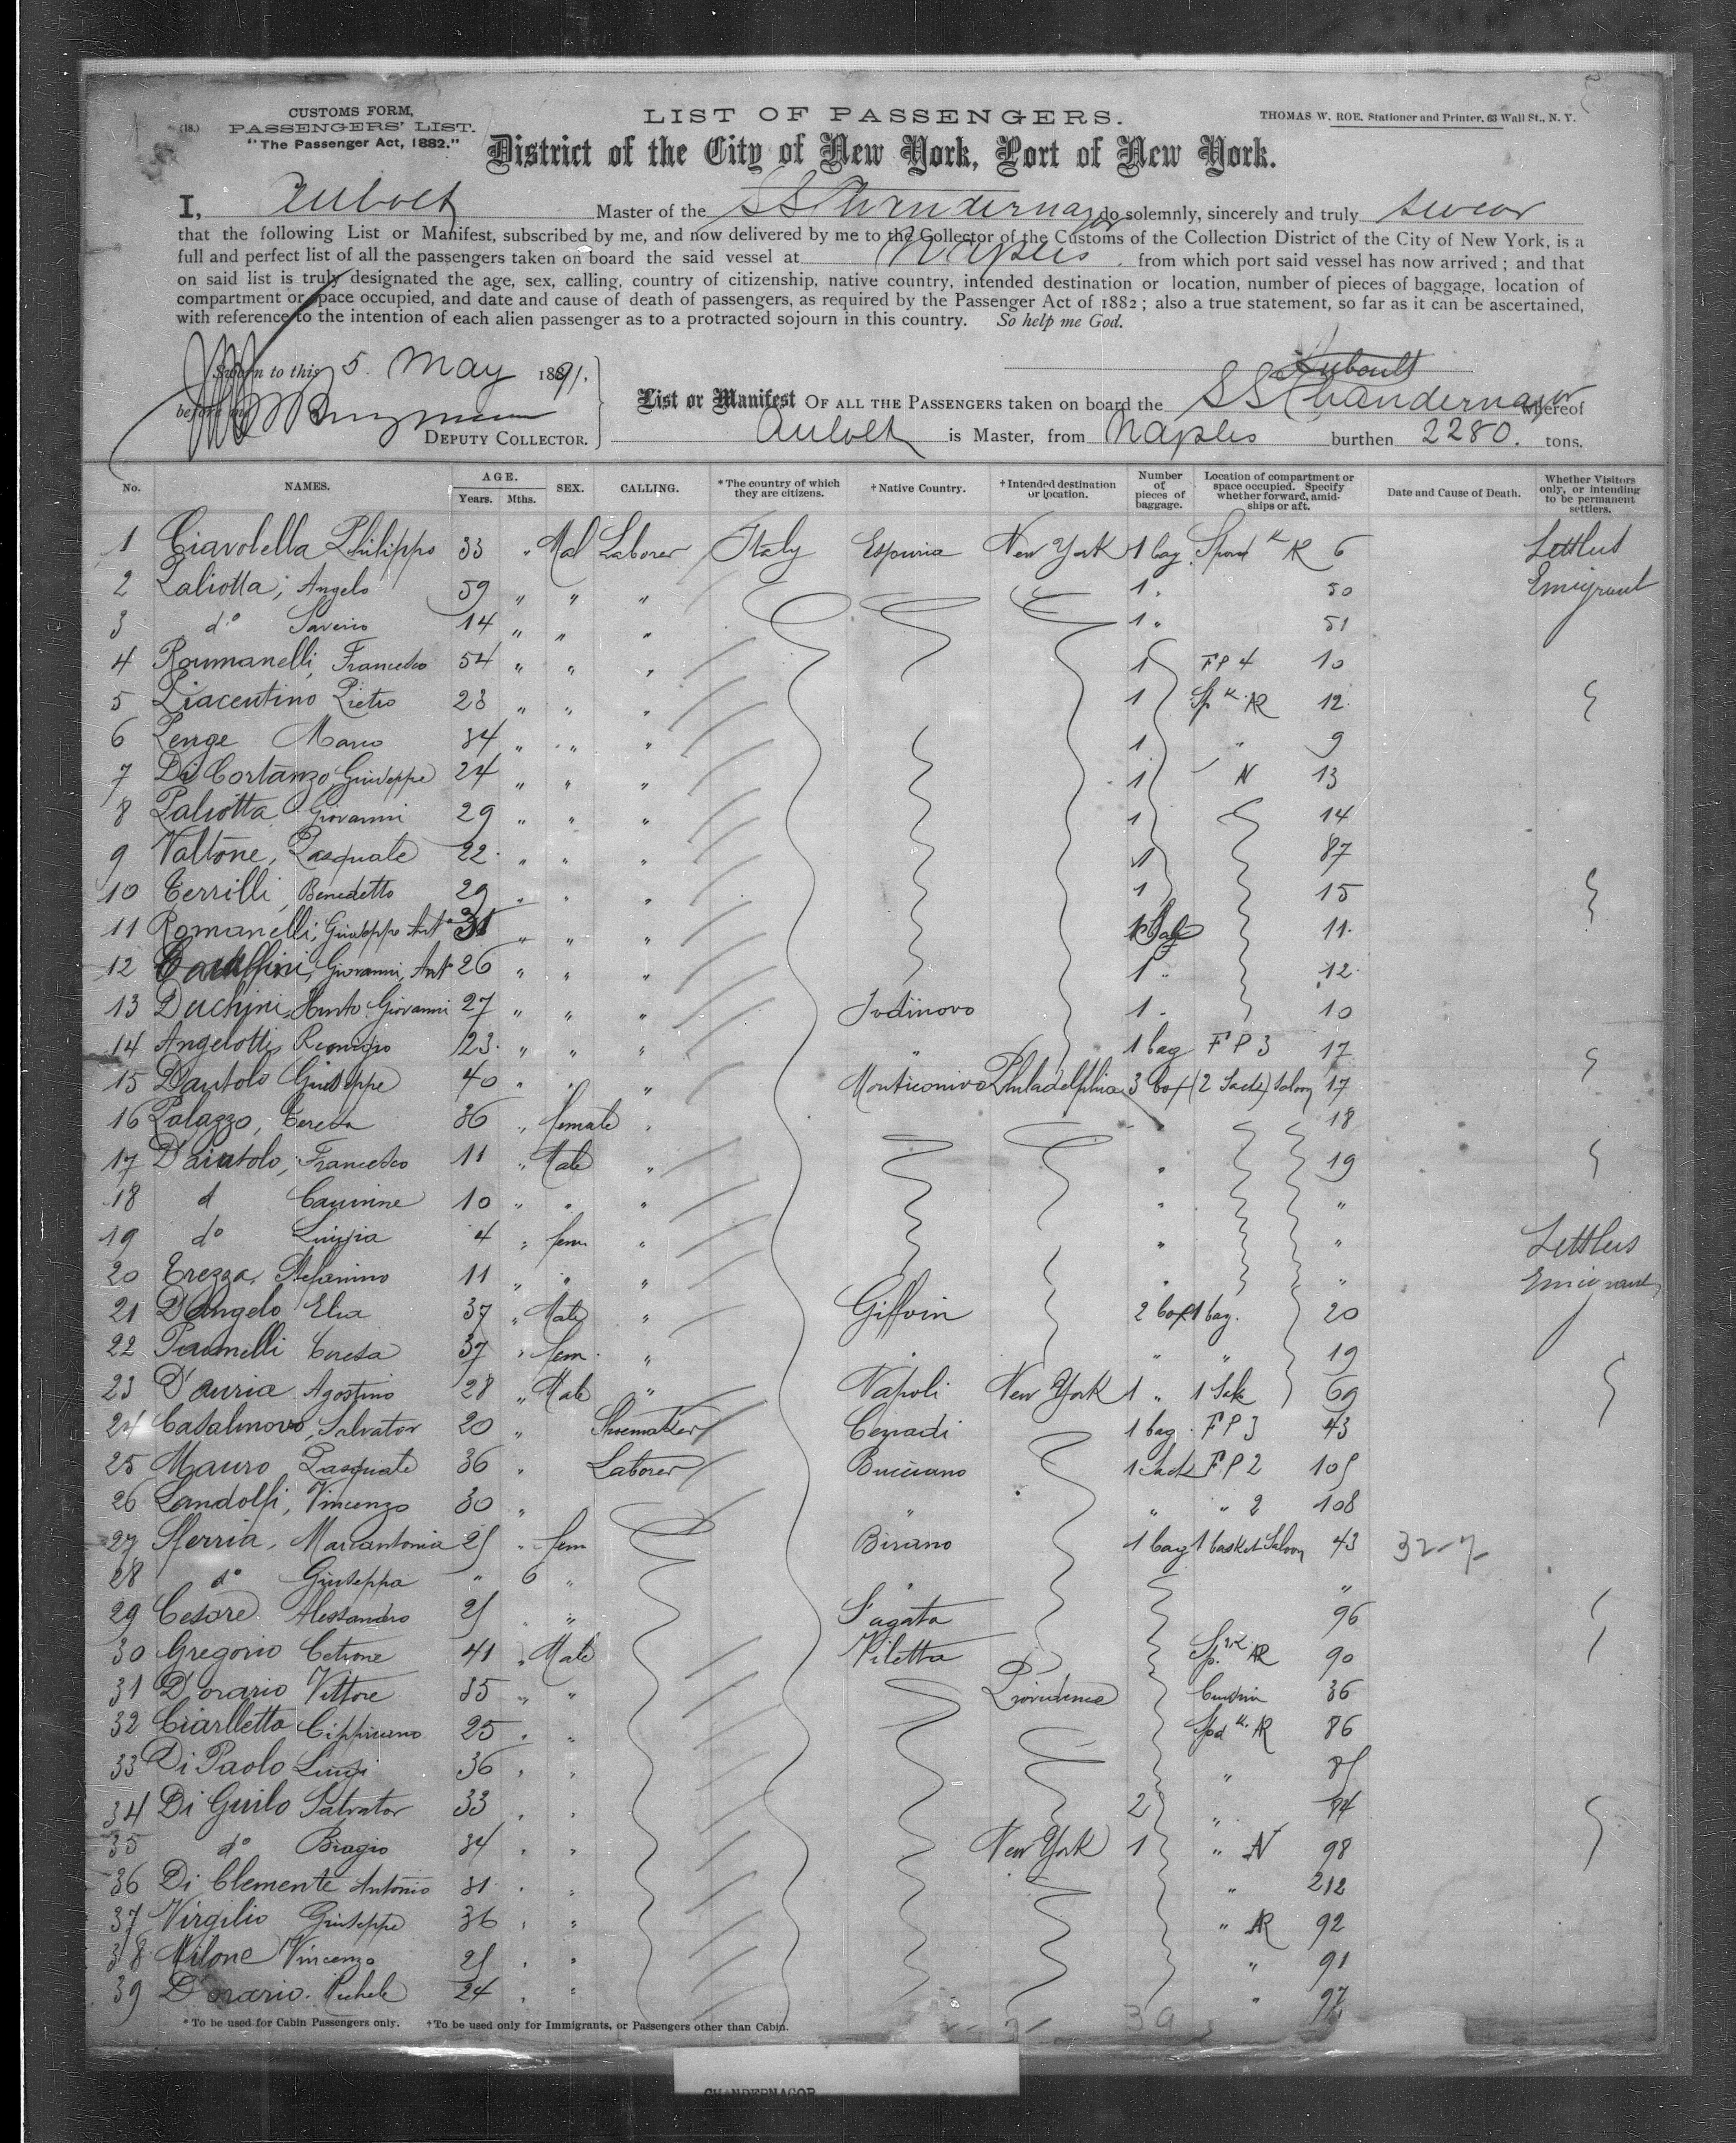 CUSTOMS FORM,
PASSENGERS' LIST.
"The Passenger Act, 1882."
(18.)
LIST OF PASSENGERS.
THOMAS W. ROE, Stationer and Printer, 63 Wall St., N. Y.
District of the City of New York, Port of New York.
I, Aubolt Master of the SS Chandernagor do solemnly, sincerely and truly swear
that the following List or Manifest, subscribed by me, and now delivered by me to the Collector of the Customs of the Collection District of the City of New York, is a
full and perfect list of all the passengers taken on board the said vessel at Naples from which port said vessel has now arrived; and that
on said list is truly designated the age, sex, calling, country of citizenship, native country, intended destination or location, number of pieces of baggage, location of
compartment or space occupied, and date and cause of death of passengers, as required by the Passenger Act of 1882; also a true statement, so far as it can be ascertained,
with reference to the intention of each alien passenger as to a protracted sojourn in this country. So help me God.
Aubault
Sworn to this 5. May 1891.
before me
DEPUTY COLLECTOR.
List or Manifest OF ALL THE PASSENGERS taken on board the SS Chandernagor whereof
Aubolt is Master, from Naples burthen 2280. tons.
No. NAMES. AGE. Years. Mths. SEX. CALLING. *The country of which they are citizens. †Native Country. †Intended destination or location. Number of pieces of baggage. Location of compartment or space occupied. Specify whether forward, amidships or aft. Date and Cause of Death. Whether Visitors only, or intending to be permanent settlers.
1 Ciavolella Philippo 33 " Mal Laborer Italy New York 1 bag AR 6 Settlers
2 Paliotta, Angelo 59 " " " 1 " 50 Emigrant
3 do Saverio 14 " " " 1 " 51
4 Roumanelli, Francesco 54 " " " 1 FP 4 10
5 Piacentino Pietro 23 " " " 1 AR 12
6 Penge Marco 34 " " " 1 " 9
7 Di Costanzo Giuseppe 24 " " " 1 N 13
8 Paliotta Giovanni 29 " " " 1 14
9 Valtone, Pasquale 22 " " " 1 87
10 Terrilli, Benedetto 29 " " " 1 15
11 Romanelli, Giuseppe Anto 31 " " " 1 Bag 11
12 Giovanni, Anto 26 " " " 1 " 12
13 Duchini, Giovanni 27 " " " 1 " 10
14 Angelotti, Remigio 23 " " " " 1 bag FP 3 17
15 Dautolo Giuseppe 40 " " " Philadelphia 3 box (2 Sacks) Saloon 17
16 Palazzo, Teresa 36 " female " " 18
17 Daiatolo, Francesco 11 " Male " " 19
18 d Carmine 10 " " " " "
19 do Luigia 4 " fem " " " Settlers
20 Trezza, Stefanino 11 " " " " " Emigrant
21 D'Angelo Elia 37 " Male " Giffoin 2 box 1 bag. 20
22 Teresa 37 " fem. " " " " 19
23 D'auria Agostino 28 " Male " Napoli New York 1 " 1 Sak 69
24 Casalinovo, Salvator 20 " Shoemaker Cenadi 1 bag FP 3 43
25 Mauro Pasquale 36 " Laborer Bucciano 1 Sack FP 2 105
26 Landolfi, Vincenzo 30 " " " " 2 108
27 Sferria, Marcantonia 25 " fem Bisano 1 bag 1 basket Saloon 43
28 do Giuseppa " 6 " " "
29 Cesare Alessandro 25 " " S'agata 96
30 Gregorio Cetrone 41 " Male Viletta AR 90
31 D'orario Vittore 35 " " Providence 36
32 Ciarlletta Cippriano 25 " " AR 86
33 Di Paolo Luigi 36 " " " 85
34 Di Guilo Salvator 33 " " 2 " 84
35 do Biagio 34 " " New York 1 " N 98
36 Di Clemente Antonio 31 " " " 212
37 Virgilio Giuseppe 36 " " " AR 92
38 Milone Vincenzo 25 " " " 91
39 D'orario Michele 24 " " " 97
*To be used for Cabin Passengers only. †To be used only for Immigrants, or Passengers other than Cabin.
39
CHANDERNAGOR